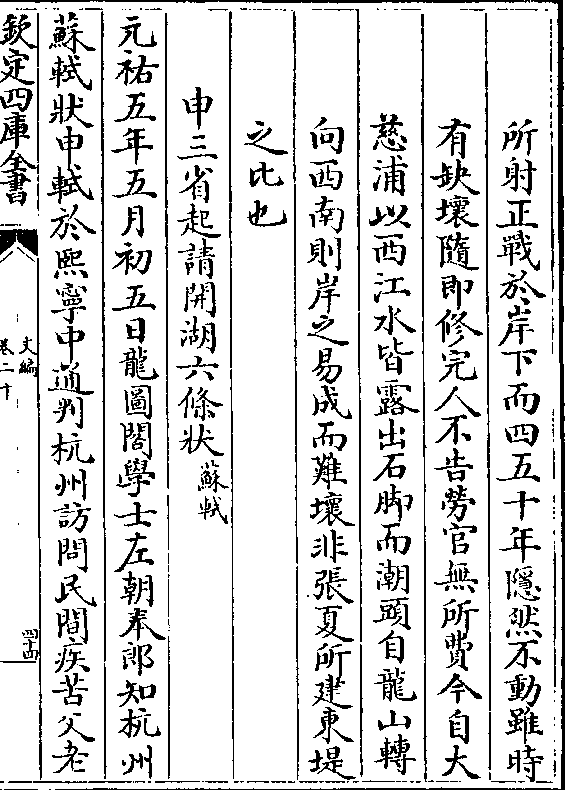 所射正戰於岸下而四五十年隱然不動雖時
有缺壞隨即修完人不告勞官無所費今自大
慈浦以西江水皆露出石脚而潮頭自龍山轉
向西南則岸之易成而難壞非張夏所建東堤
之比也
申三省起請開湖六條狀 蘇軾
元祐五年五月初五日龍圖閣學士左朝奉郎知杭州
蘇軾狀申軾於熙寧中通判杭州訪問民間疾苦父老
欽定四庫全書
文編
卷二十
四十四